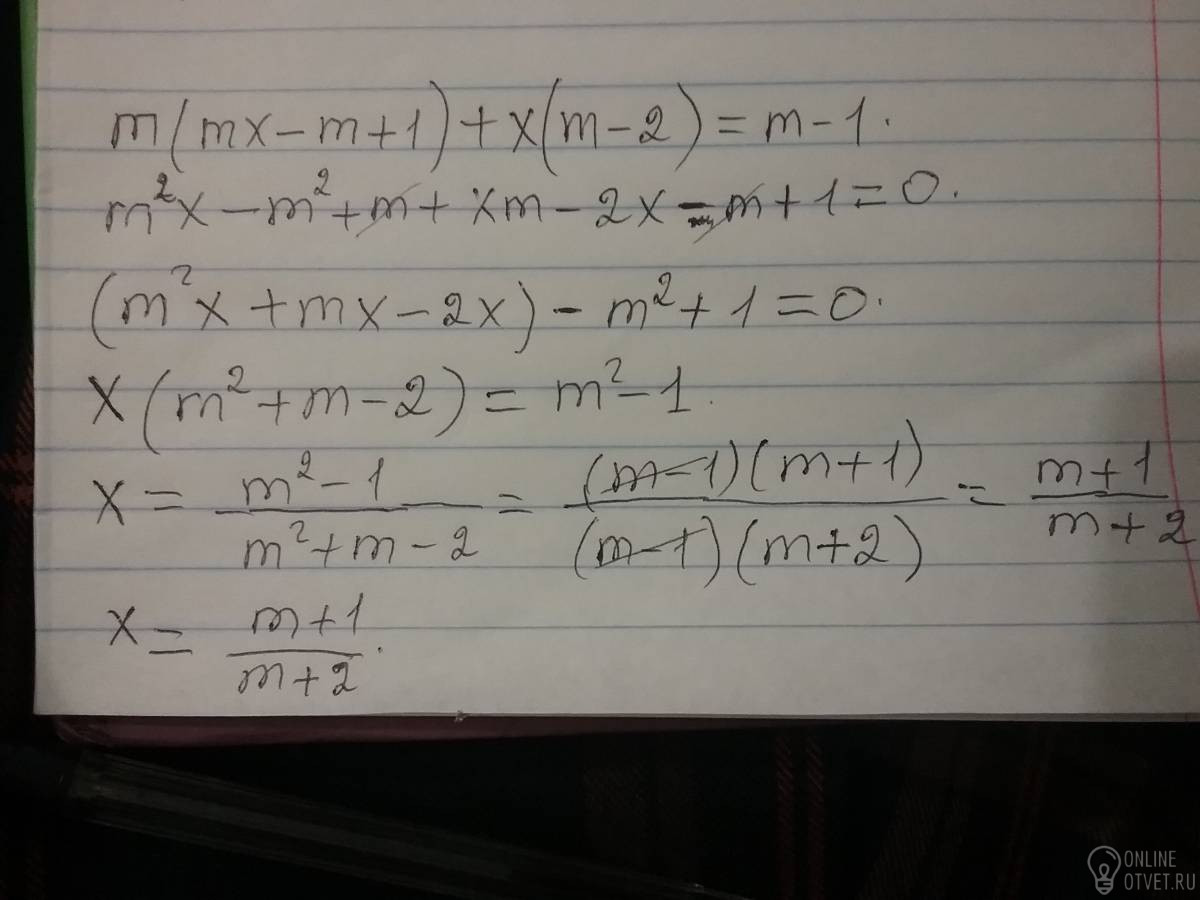 m(mx-m+1)+x(m-2)=m-1.
m²x-m²+m+xm-2x-m+1=0.
(m²x+mx-2x)-m²+1=0.
x(m²+m-2)=m²-1.
x = (m²-1)/(m²+m-2) = ((m-1)(m+1))/((m-1)(m+2)) = (m+1)/(m+2)
x = (m+1)/(m+2).
ONLINE
OTVET.RU